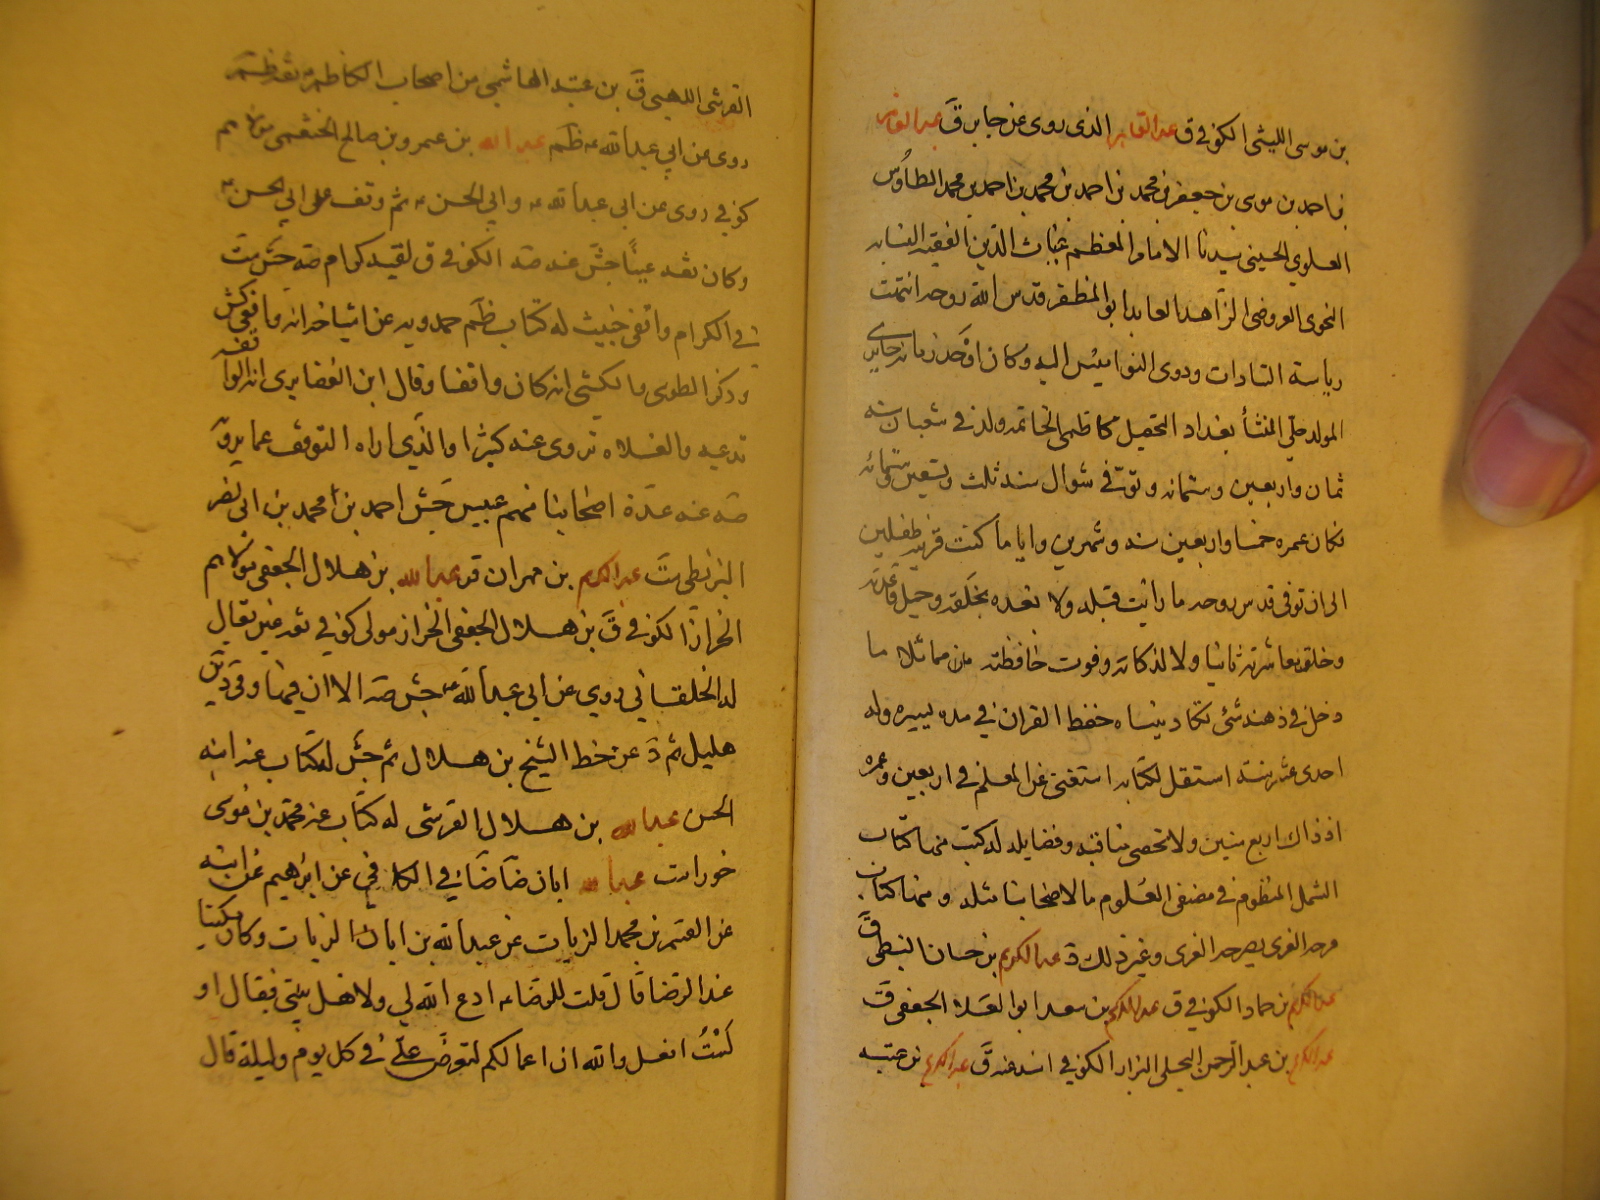 بن موسى الليثى الكوفى ق عبد القاهر الذى روى عن جابر ق عبد القاهر
بن احمد بن موسى بن جعفر بن محمد بن احمد بن محمد بن احمد بن محمد الطاوس
العلوي الحسينى سيدنا الامام المعظم غياث الدين الفقيه النسابه
النحوى العروضى الزاهد العابد ابو المظفر قدس الله روحه انتهت
رياسة السادات وذوى النواميس اليه وكان اوحد زمانه حايرى
المولد حلى المنشأ بغداد التحصيل كاظمى الخاتمة ولد فى شعبان سنه
ثمان واربعين وستمائه وتوفى فى شوال سنه ثلث وتسعين وستمائه
فكان عمره خمسا واربعين سنه وشهرين واياما كنت قرينه طفلين
الى ان توفى قدس روحه ما رايت قبله ولا بعده بخلقه وجميل قاعدته
وحلو معاشرته ثانيا ولا لذكائه وقوت حافظته مماثلا ما
دخل فى ذهنه شئ فكاد ينساه حفظ القران فى مده يسيره وله
احدى عشر سنة استقل بالكتابه استغنى عن المعلم فى اربعين وعمره
اذ ذاك اربع سنين ولا تحصى مناقبه وفضايله له كتب منها كتاب
الشمل المنظوم فى مصنفى العلوم ما لاصحابنا مثله ومنها كتاب
فرحه الغرى بصرحه الغرى وغير ذلك د عبد الكريم بن حسان النبطى ق
عبد الكريم بن حماد الكوفى ق عبد الكريم بن سعد ابو العلاء الجعفى ق
عبد الكريم بن عبد الرحمن البجلى البزاز الكوفى اسند عنه ق عبد الكريم بن عتبه
القرشى اللهبى ق بن عتبه الهاشمى من اصحاب الكاظم ثقه ظم
روى عن ابى عبد الله ظم عبد الله بن عمرو بن صالح الخثعمى مولاهم
كوفى روى عن ابى عبد الله وابى الحسن ثم وقف على ابى الحسن
وكان ثقه عينا جش عنه صه الكوفى ق لقبه كرام صه جش ست
فى الكرام واقفى خبيث له كتاب ظم حمدويه عن اشياخه انه واقفى كش
وذكر الطوسى والكشى انه كان واقفا وقال ابن الغضايرى ان الواقفه
تدعيه والغلاه تروى عنه كثيرا والذى اراه التوقف عما يرويه
صه عنه عدة اصحابنا منهم عبيس جش احمد بن محمد بن ابى نصر
البزنطى ست عبد الكريم بن مهران قر عبد الله بن هلال الجعفى مولاهم
الخزاز الكوفى ق بن هلال الجعفى الخزاز مولى كوفى ثقه عين يقال
له الخلقانى روى عن ابى عبد الله جش صه الا ان فيها وفى د بن
هليل ثم د عن خط الشيخ بن هلال ثم جش له كتاب عنه ابنه
الحسن عبد الله بن هلال القرشى له كتاب عنه محمد بن موسى
خوراست عبد الله ابان ضا فى الكافى عن ابرهيم عن ابيه
عن القسم بن محمد الزيات عن عبد الله بن ابان الزيات وكان مكينا
عند الرضا قال قلت للرضا ادع الله لى ولاهل بيتى فقال او
لست افعل والله ان اعمالكم لتعرض على فى كل يوم وليلة قال